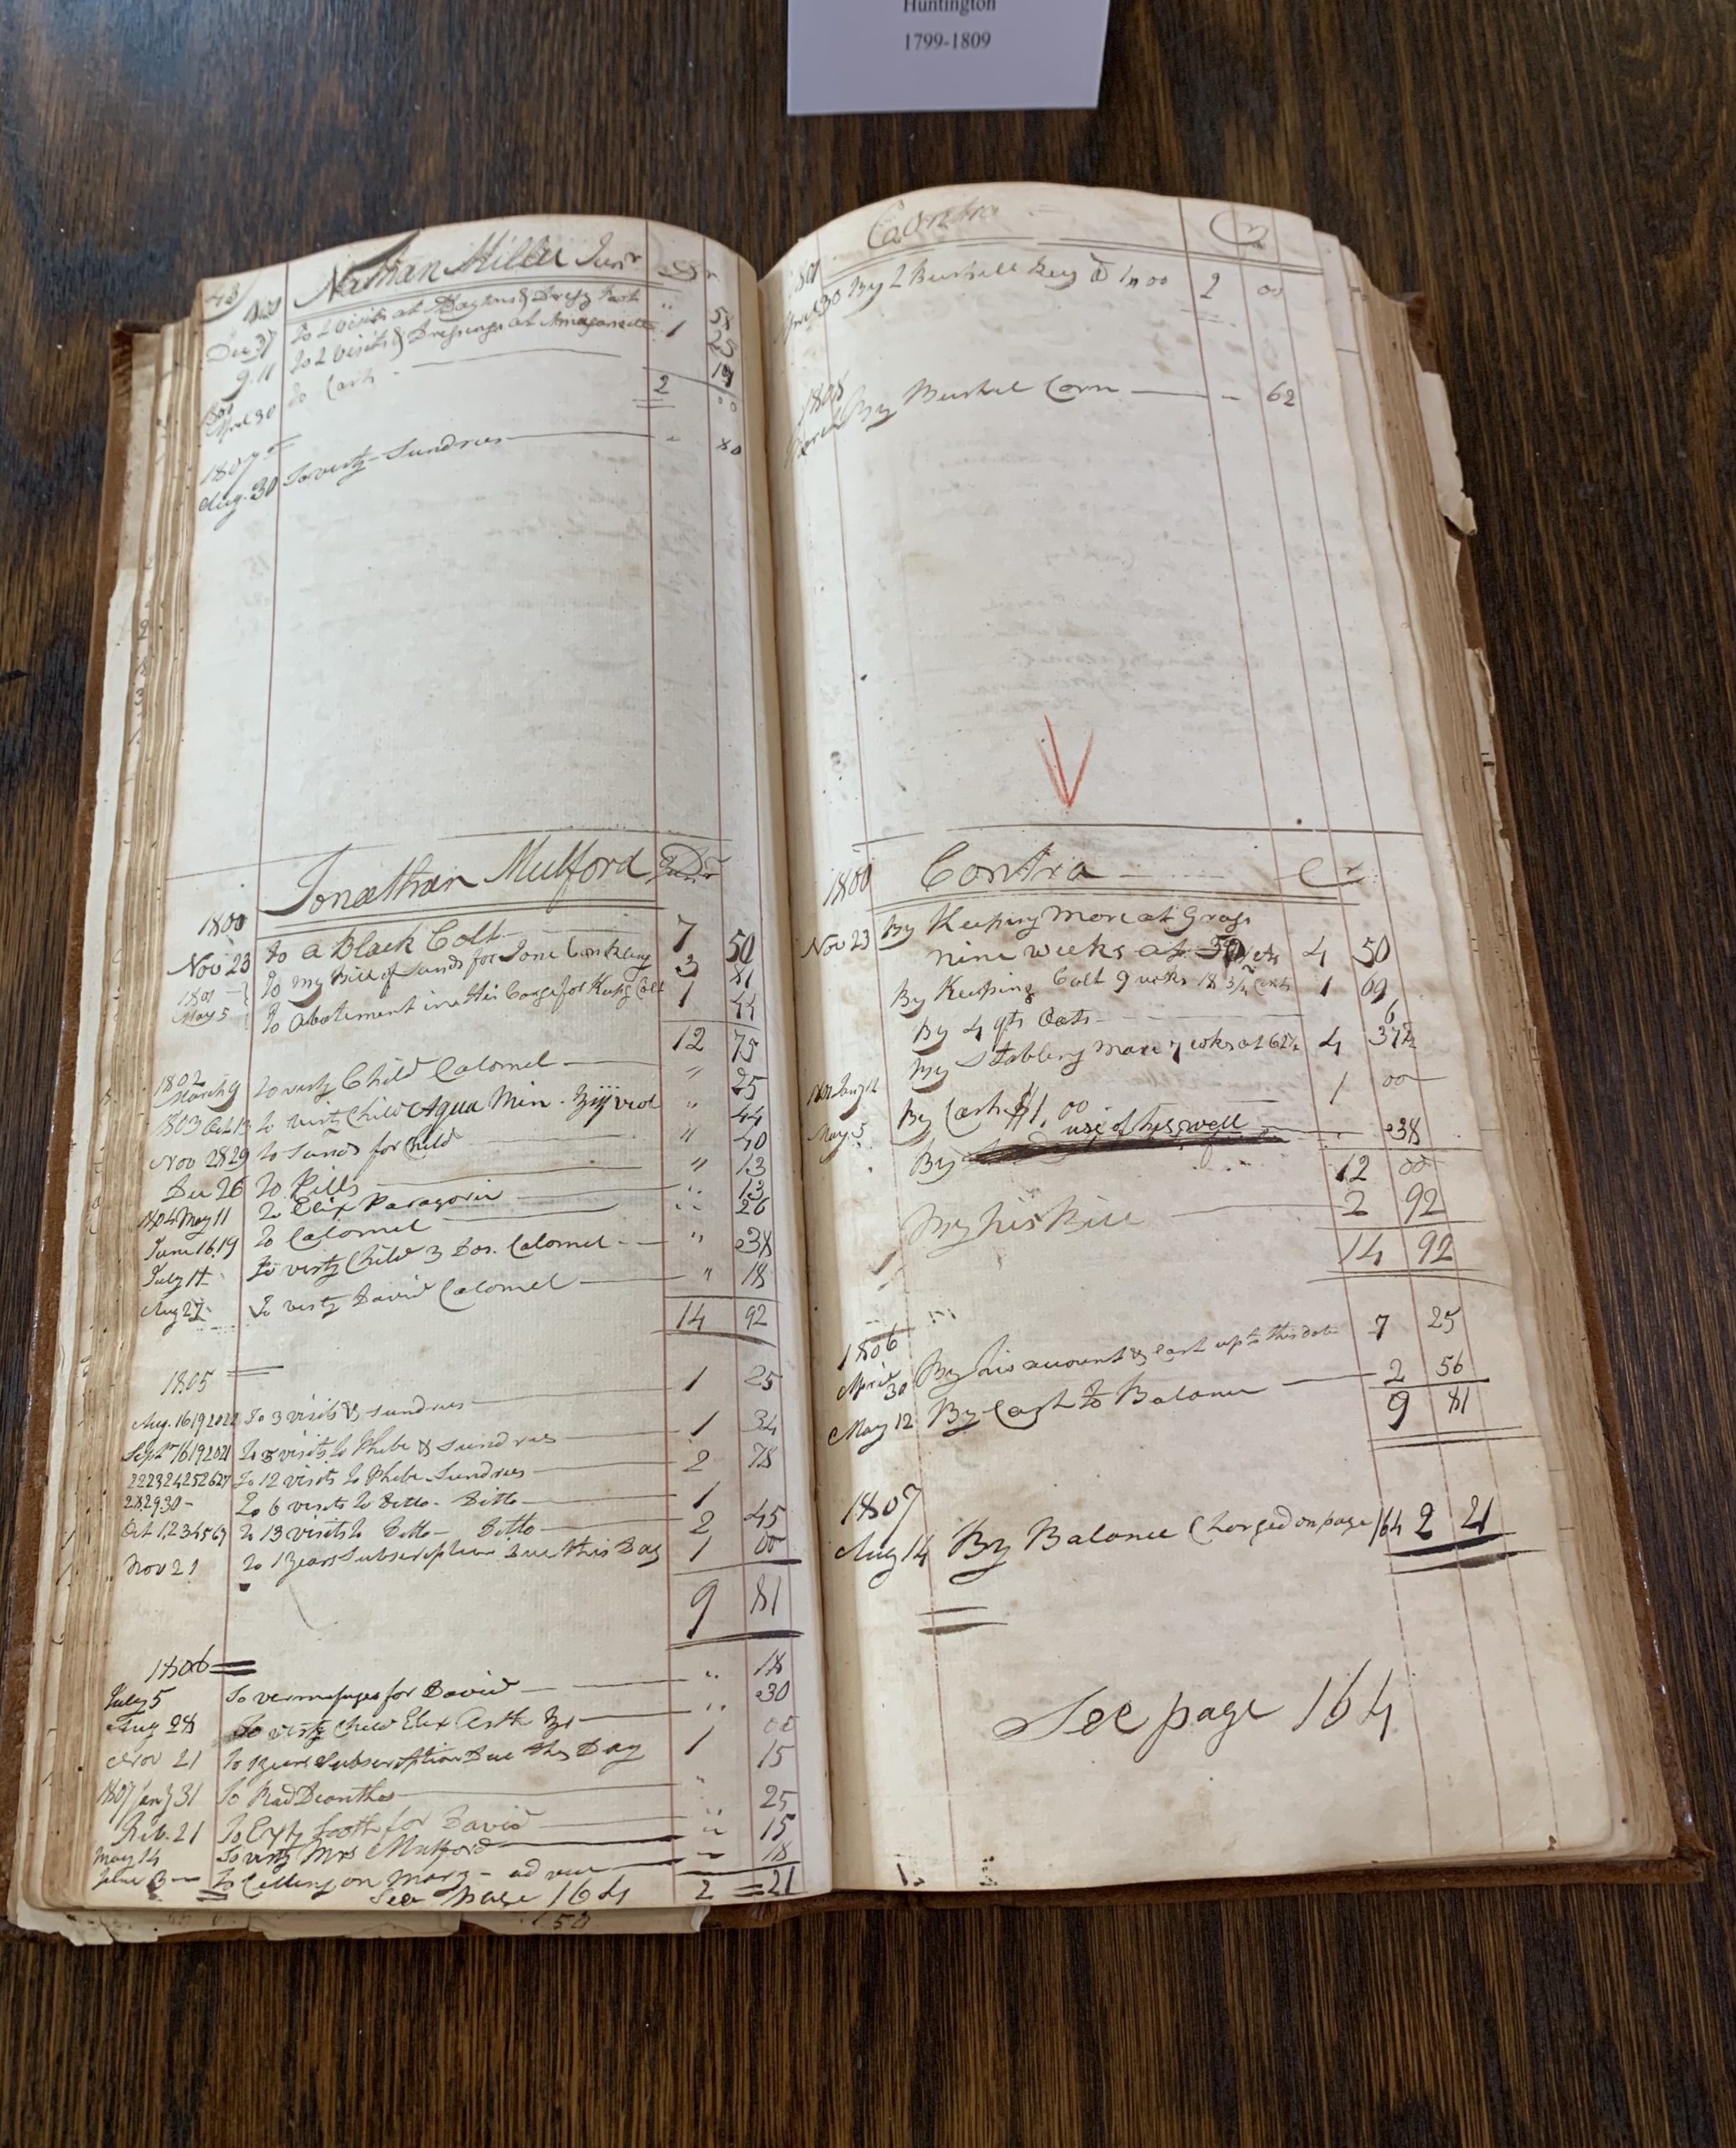 Huntington
1799-1809
43
Nathan Miller Junr Dr
Dec 27 To 2 visits at Daytons & Dressg Foot " 58
9.11 To 2 visits & Dressings at Amagansett 1 25
April 30 To Cash 2 00
1807
Aug. 30 To visitg - Sundries - 80
Contra Cr
April 30 By 2 Bushels Rey @ 1,00 2 00
1805
By Bushel Corn - 62
Jonathan Mulford Dr
1800
Nov 23 To a Black Colt 7 50
1801 To my Bill of Sunds for Jane Conkling 3 81
May 5 To Abatement in His Carge for Keepg Colt 1 44
12 75
1802 March 9 To visitg Child Calomel " 25
1803 Oct 13 To visitg Child Aqua Min. " 44
Nov 28 29 To Sunds for Child " 40
Dec 26 To Pills " 13
1804 May 11 To Elix Paragoric " 13
June 16.19 To Calomel " 26
July 11 To visitg Child 3 Dos. Calomel " 38
Aug 27 To visitg David Calomel " 18
14 92
1805
Aug. 16 19 20 22 To 3 visits & sundries 1 25
Sept 16 19 20 21 To 3 visits to Phebe & Sundries 1 34
22 23 24 25 26 27 To 12 visits to Phebe Sundries 2 78
28 29 30 - To 6 visits to Ditto - Ditto 1
Oct 1 2 3 4 5 6 7 To 13 visits to Ditto - Ditto 2 45
Nov 21 To 1 Years Subscription Due this Day 1 00
9 81
1806
July 5 To vermifuges for David " 18
Aug 28 To visitg Child Elix Asth " 30
Nov 21 To 1 Years Subscription Due this Day 1 00
1807 Jany 31 To Rad Dianthas " 15
Feb. 21 To Extg Tooth for David " 25
May 14 To visitg Mrs Mulford " 15
June 3 To Calling on Mary - ad vice - 18
See page 164 2 21
Contra Cr
1800
Nov 23 By Keeping Mare at Grass
nine weeks at 50 cts 4 50
By Keeping Colt 9 weeks 18 3/4 Cents 1 69
By 4 qts Oats 6
By Stabling Mare 7 weks at 62½ 4 37½
By Cash $1.00 1 00
May 5 By use of his well 38
12 00
By his Bill 2 92
14 92
1806
April 30 By his account & cash up to this date 7 25
May 12 By Cash to Balance 2 56
9 81
1807
Aug 14 By Balance Charged on page 164 2 21
See page 164